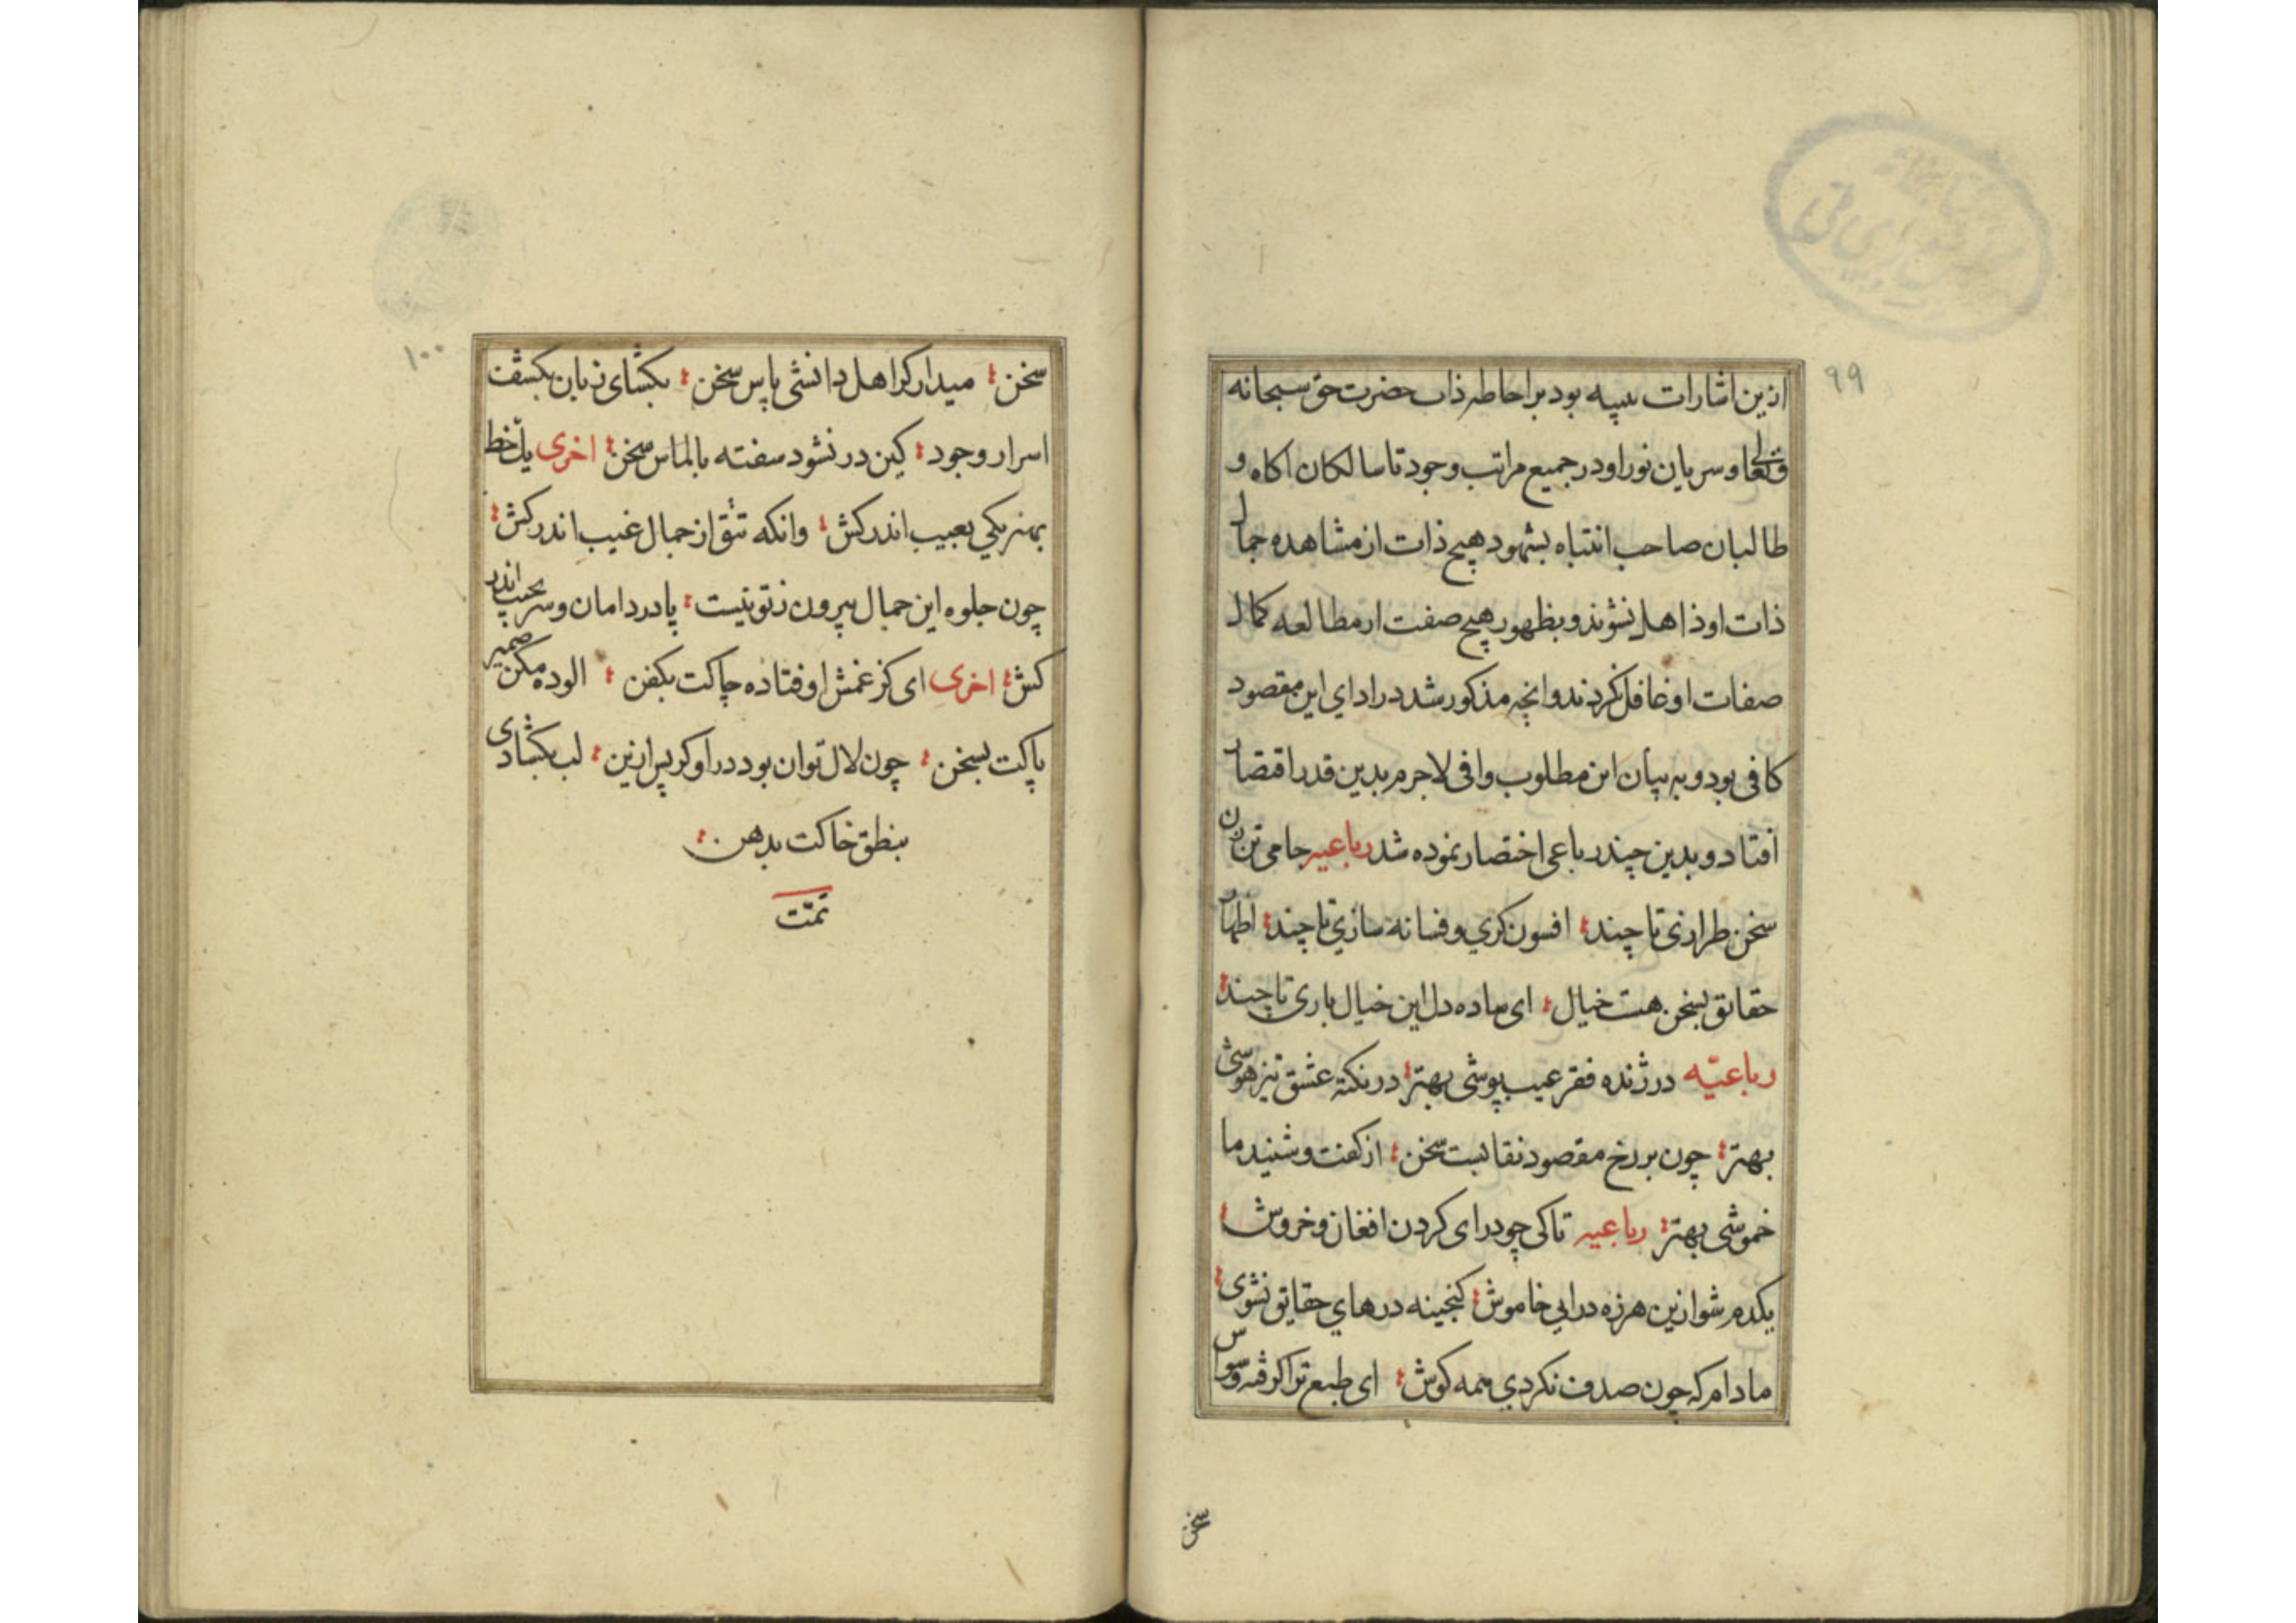 ۹۹
ازین اشارات تنبیه بود بر احاطه ذات حضرت حق سبحانه
وتعالی و سریان نور او در جمیع مراتب وجود تا سالکان اکاه و
طالبان صاحب انتباه بشهود هیچ ذات از مشاهده جمال
ذات او ذاهل نشوند و بظهور هیچ صفت از مطالعه کمال
صفات او غافل نکردند وانچه مذکور شد در ادای این مقصود
کافی بود و به بیان این مطلوب وافی لاجرم بدین قدر اقتصار
افتاد و بدین چند رباعی اختصار نموده شد رباعیه جامی تن زن
سخن طرازی تا چند افسون کری و فسانه سازی تا چند اظهار
حقایق بسخن هست خیال ای ساده دل این خیال بازی تا چند
رباعیّه در ژنده فقر عیب پوشی بهتر در نکته عشق تیز هوشی
بهتر چون بر رخ مقصود نقابست سخن از کفت و شنید ما
خموشی بهتر رباعیه تا کی چو درای کردن افغان و خروش
یکدم شو ازین هرزه درایی خاموش کنجینه درهای حقایق نشوی
مادام که چون صدف نکردی همه کوش ای طبع ترا کرفته وسواس
سخن
۱۰۰
سخن میدار کر اهل دانشی پاس سخن بکشای زبان بکشف
اسرار وجود کین در نشود سفته بالماس سخن اخری یک خط
بهنر یکی بعیب اندر کش وانکه تتق از جمال غیب اندر کش
چون جلوه این جمال بیرون ز تو نیست پا در دامان و سر بجیب اندر
کش اخری ای کز غمش اوفتاده چاکت بکفن الوده مکن ضمیر
پاکت بسخن چون لال توان بود در او کر پس ازین لب بکشادی
بنطق خاکت بدهن
تمّت